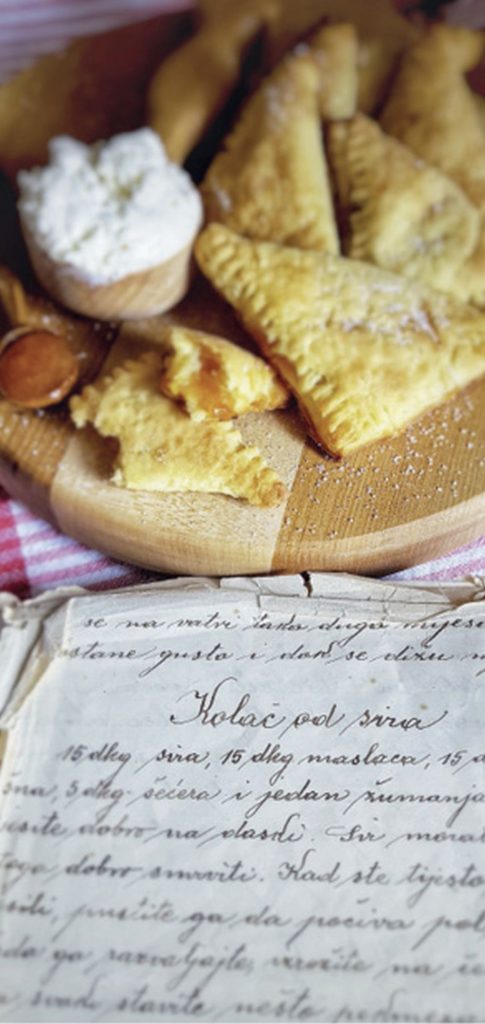 se na vatri tako dugo mijes
ostane gusto i dok se dižu
Kolač od sira
15 dkg. sira, 15 dkg maslaca, 15 d
šna, 5 dkg. šećera i jedan žumanja
jesite dobro na daski. Sir mora
toga dobro smrviti. Kad ste tijesto
silí, pustite ga da počiva pol
da ga razvaljajte, na
svaki stavite nešto pekmeza